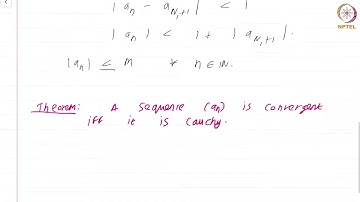 | a_n - a_{N_1+1} | < 1
| a_n | < 1 + | a_{N_1+1} |.
|a_n| ≤ M ∀ n ∈ ℕ.
Theorem: A sequence (a_n) is convergent
iff it is Cauchy.
NPTEL